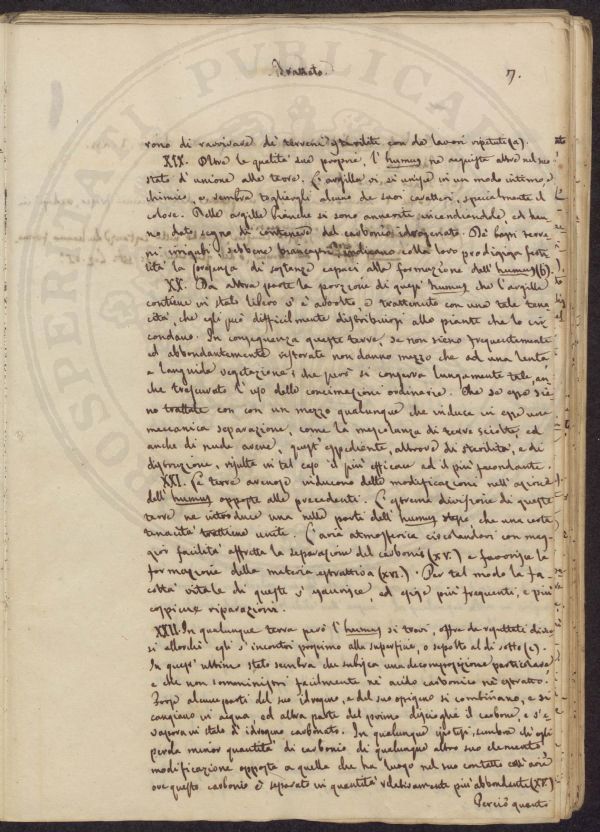 Trattato.
7.
rono di ravvivare de' terreni steriliti con de' lavori ripetuti (a).
XIX. Oltre le qualità sue proprie, l'humus ne acquista altre nel suo
stato d'unione alle terre. L'argilla vi si unisce in un modo intimo, e
chimico, e sembra togliergli alcuno de' suoi caratteri, specialmente il
colore. Delle argille bianche si sono annerite incendiandole, ed han
no dato segno di contenere del carbonio idrogenato. De' bassi terre
ni irrigati, sebbene biancastri, indicano colla loro prodigiosa ferti
lità la presenza di sostanze capaci alla formazione dell'humus (b).
XX. Da altra parte la porzione di quest'humus che l'argilla
contiene in stato libero v'è adsorto, e trattenuto con una tale tena
cità, che egli può difficilmente distribuirsi alle piante che lo cir
condano. In conseguenza queste terre, se non sieno frequentemente
ed abbondantemente ristorate non danno mezzo che ad una lenta
e languida vegetazione; che però si conserva lungamente tale, an
che trascurato l'uso delle concimazioni ordinarie. Che se esse sie
no trattate con con un mezzo qualunque che induca in esse una
meccanica separazione, come la mescolanza di terre sciolte, ed
anche di nude arene, quest'espediente, altrove di sterilità, e di
distruzione, risulta in tal caso il più efficace ed il più fecondante.
XXI. Le terre arenose inducono delle modificazioni nell'azione
dell'humus opposte alle precedenti. L'estrema divisione di queste
terre ne introduce una nelle parti dell'humus stesso che una certa
tenacità tratteneva unite. L'aria atmosferica circolandovi con mag
gior facilità affretta la separazione del carbonio (XV.) e favorisce la
formazione della materia estrattiva (XVI.). Per tal modo la fa
coltà vitale di queste s'esaurisce, ed esige più frequenti, e più
copiose riparazioni.
XXII. In qualunque terra però l'humus si trovi, offre de' risultati diver
si allorchè egli s'incontri prossimo alla superficie, o sepolto al di sotto (c).
In quest'ultimo stato sembra che subisca una decomposizione particolare,
e che non somministri facilmente nè acido carbonico nè estratto.
Forse alcune parti del suo idrogeno, e del suo ossigeno si combinano, e si
cangiano in acqua, ed altra parte del primo discioglie il carbone, e s'e
vapora in stato di idrogeno carbonato. In qualunque ipotesi, sembra ch'egli
perda minor quantità di carbonio di qualunque altro suo elemento,
modificazione opposta a quella che ha luogo nel suo contatto coll'aria
ove questo carbonio è separato in quantità relativamente più abbondante (XV.)
Perciò quanto
PROSPERITATI PVBLICAE